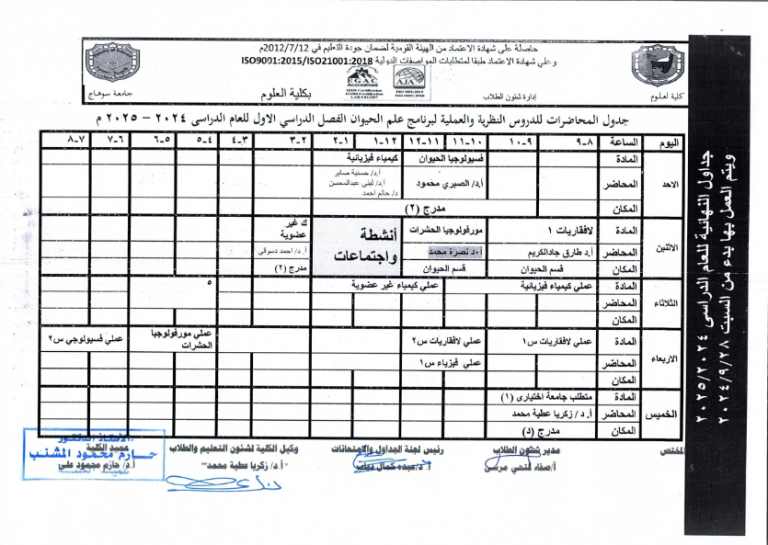 حاصلة على شهادة الاعتماد من الهيئة القومية لضمان جودة التعليم في 2012/7/12م
وعلى شهادة الاعتماد طبقا لمتطلبات المواصفات الدولية ISO9001:2015/ISO21001:2018
EGAC
AJA
كلية العلوم
إدارة شئون الطلاب
بكلية العلوم
جامعة سوهاج
جدول المحاضرات للدروس النظرية والعملية لبرنامج علم الحيوان الفصل الدراسي الاول للعام الدراسى ٢٠٢٤ – ٢٠٢٥ م
اليوم الساعة ٨-٩ ٩-١٠ ١٠-١١ ١١-١٢ ١٢-١ ١-٢ ٢-٣ ٣-٤ ٤-٥ ٥-٦ ٦-٧ ٧-٨
الاحد
المادة فسيولوجيا الحيوان كيمياء فيزيائية
المحاضر أ.د/ الصبري محمود
أ.د/ حسنية صابر
أ.د/ لبنى عبدالمحسن
د/ حاتم احمد
المكان مدرج (٢)
الاثنين
المادة لافقاريات ١ مورفولوجيا الحشرات أنشطة واجتماعات ك غير عضوية
المحاضر أ.د طارق جادالكريم أ.د نصرة محمد أ.د/ احمد دسوقى
المكان قسم الحيوان قسم الحيوان مدرج (٢)
الثلاثاء
المادة عملي كيمياء فيزيائية عملي كيمياء غير عضوية ٥
المحاضر
المكان
الاربعاء
المادة عملي لافقاريات س١ عملي لافقاريات س٢ عملي مورفولوجيا الحشرات عملي فسيولوجي س٢
المحاضر عملي فيزياء س١
المكان
الخميس
المادة متطلب جامعة اختيارى (١)
المحاضر أ. د / زكريا عطية محمد
المكان مدرج (د)
المختص
مدير شئون الطلاب
أ/صفاء فتحي مرسى
رئيس لجنة الجداول والامتحانات
أ.د/عبده كمال دياب
وكيل الكلية لشئون التعليم والطلاب
أ.د/ زكريا عطية محمد
عميد الكلية
أ.د/ حازم محمود على
الأستاذ الدكتور
حازم محمود المشنب
جداول النهائية للعام الدراسى ٢٠٢٥/٢٠٢٤
ويتم العمل بها بدء من السبت ٢٠٢٤/٩/٢٨